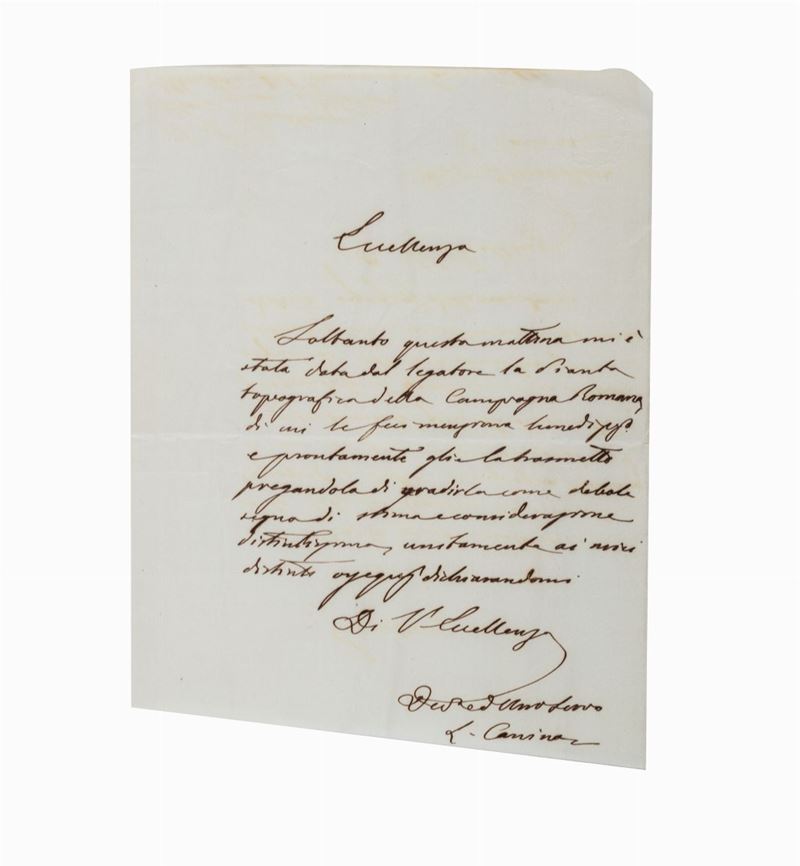 Eccellenza
Soltanto questa mattina mi è
stata data dal legatore la Pianta
topografica della Campagna Romana,
di cui le feci menzione lunedì
e prontamente glie la trasmetto
pregandola di gradirla come debole
segno di stima e considerazione
distintissima, unitamente ai miei
distinti ossequj dichiarandomi
Di V. Eccellenza
Servo
L. Canina